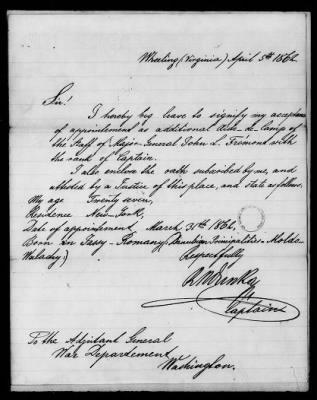 Wheeling (Virginia) April 5th 1862.
Sir!
I hereby beg leave to signify my acceptance
of appointement as additional Aide-de-Camp of
the Staff of Major-General John C. Frémont with
the rank of Captain.
I also enclose the oath subscribed by me, and
attested by a Justice of this place, and state as follows:
My age Twenty seven,
Residence New-York,
Date of appointment March 31th 1862,
Born in Jassy - Romany (Danubian Principalities - Moldo-
Walachy)
Respectfully
Captain
To the Adjutant General
War Departement
Washington.